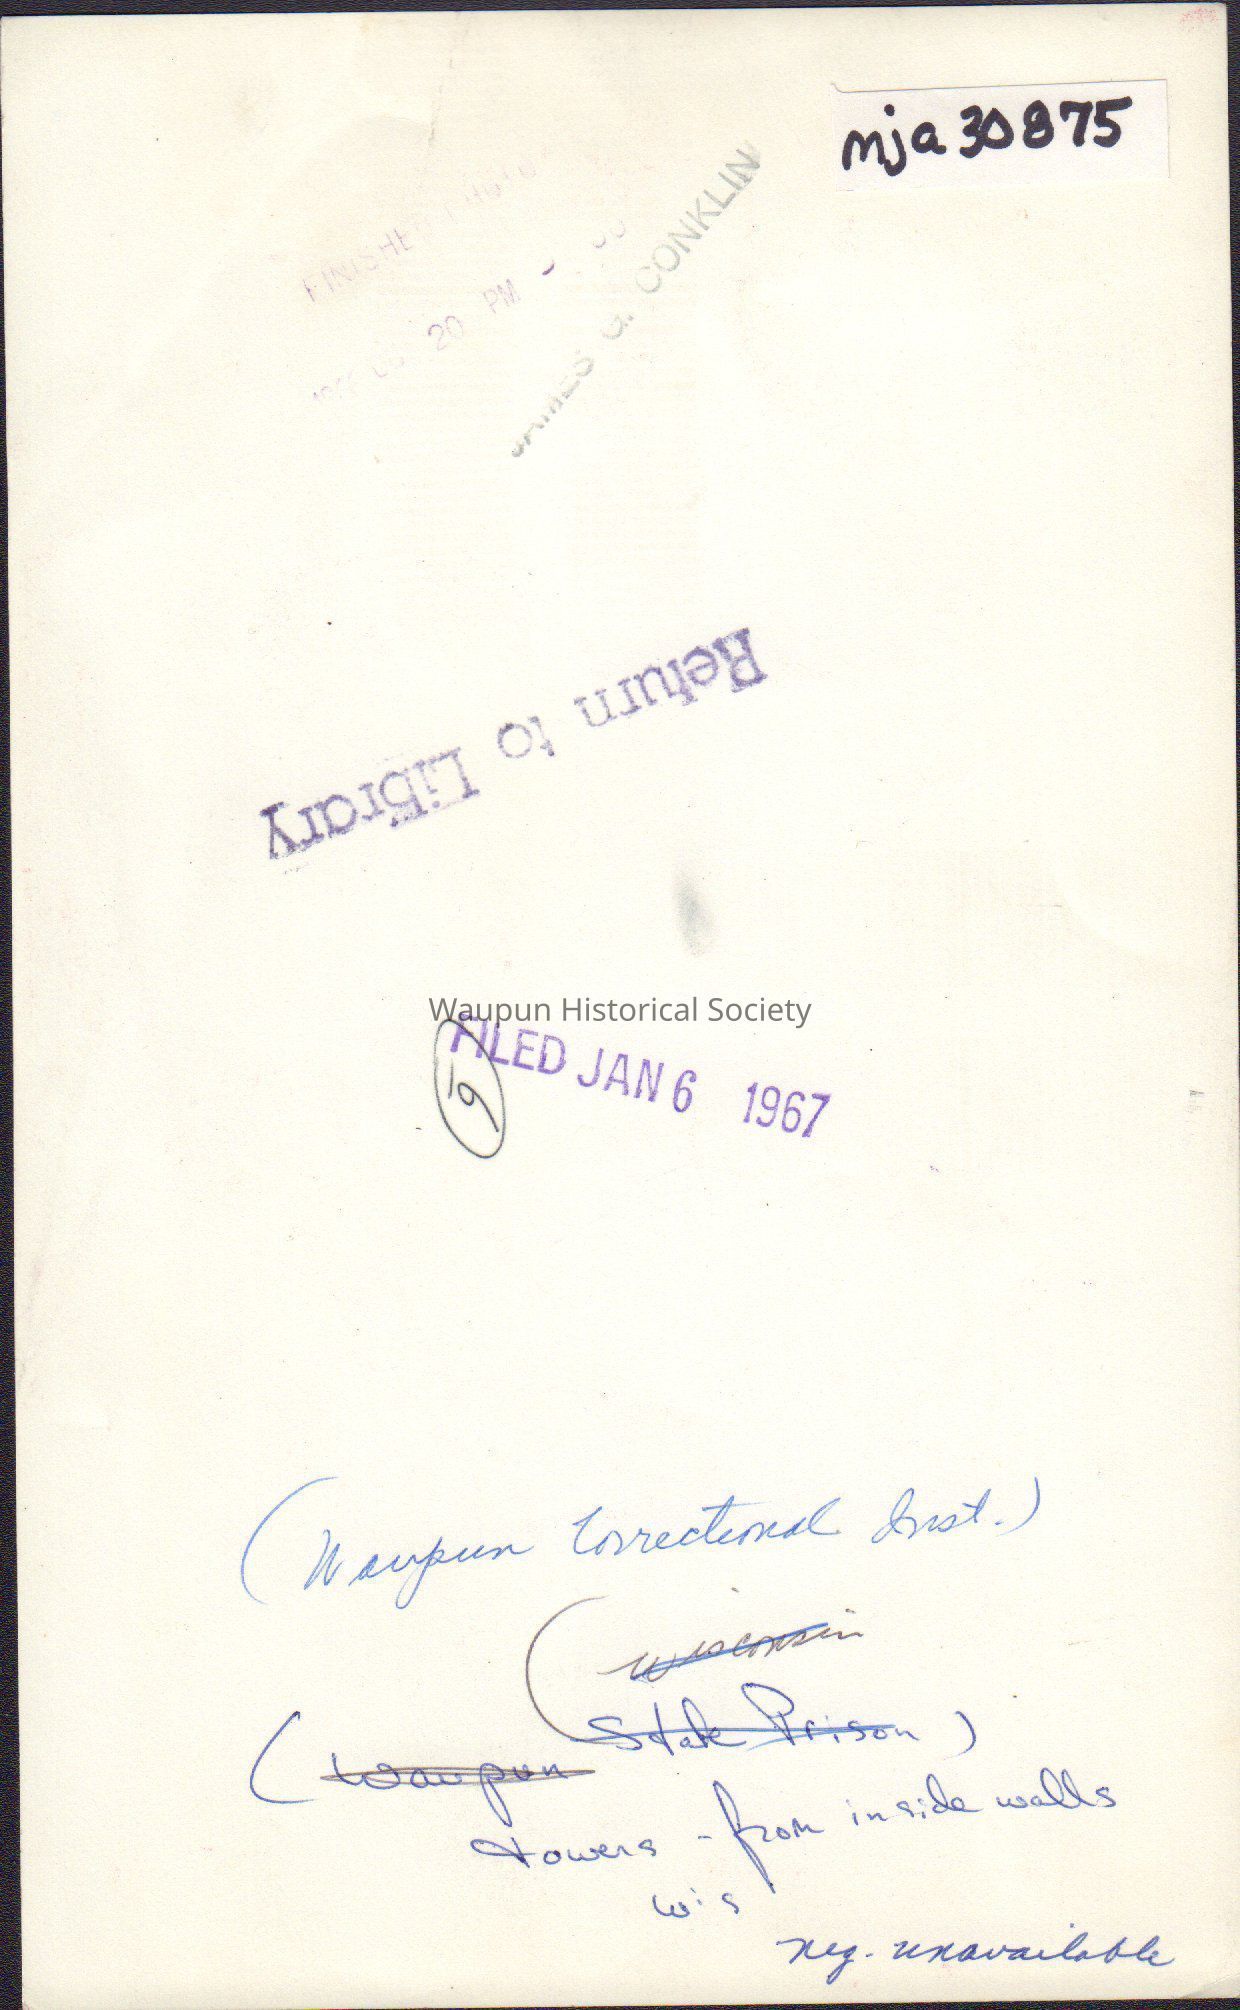 mja 30875
FINISHE
20 PM
JAMES G. CONKLIN
Return to Library
Waupun Historical Society
FILED JAN 6 1967
(Waupun Correctional Inst.)
(Wisconsin
State Prison)
(Waupun
towers - from inside walls
Wis
neg. unavailable